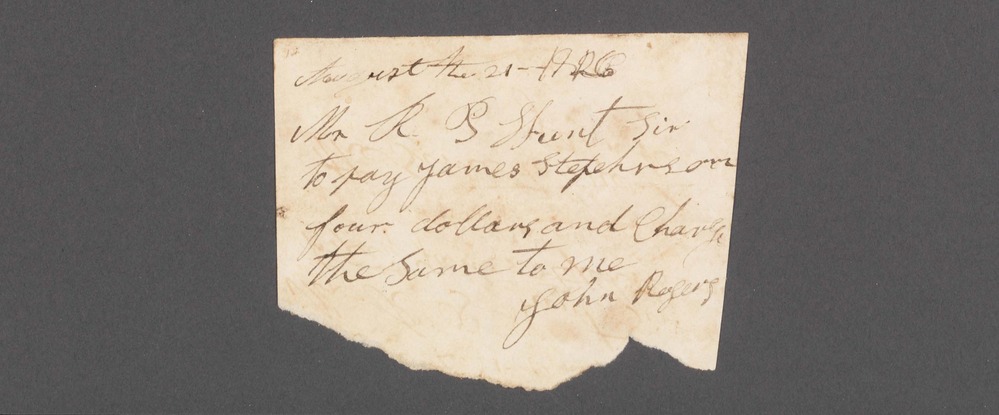 August the 21 - 1826
Mr R. P Hunt Sir
to pay James Stephrson
four dollars and Charge
the same to me
John Rogers